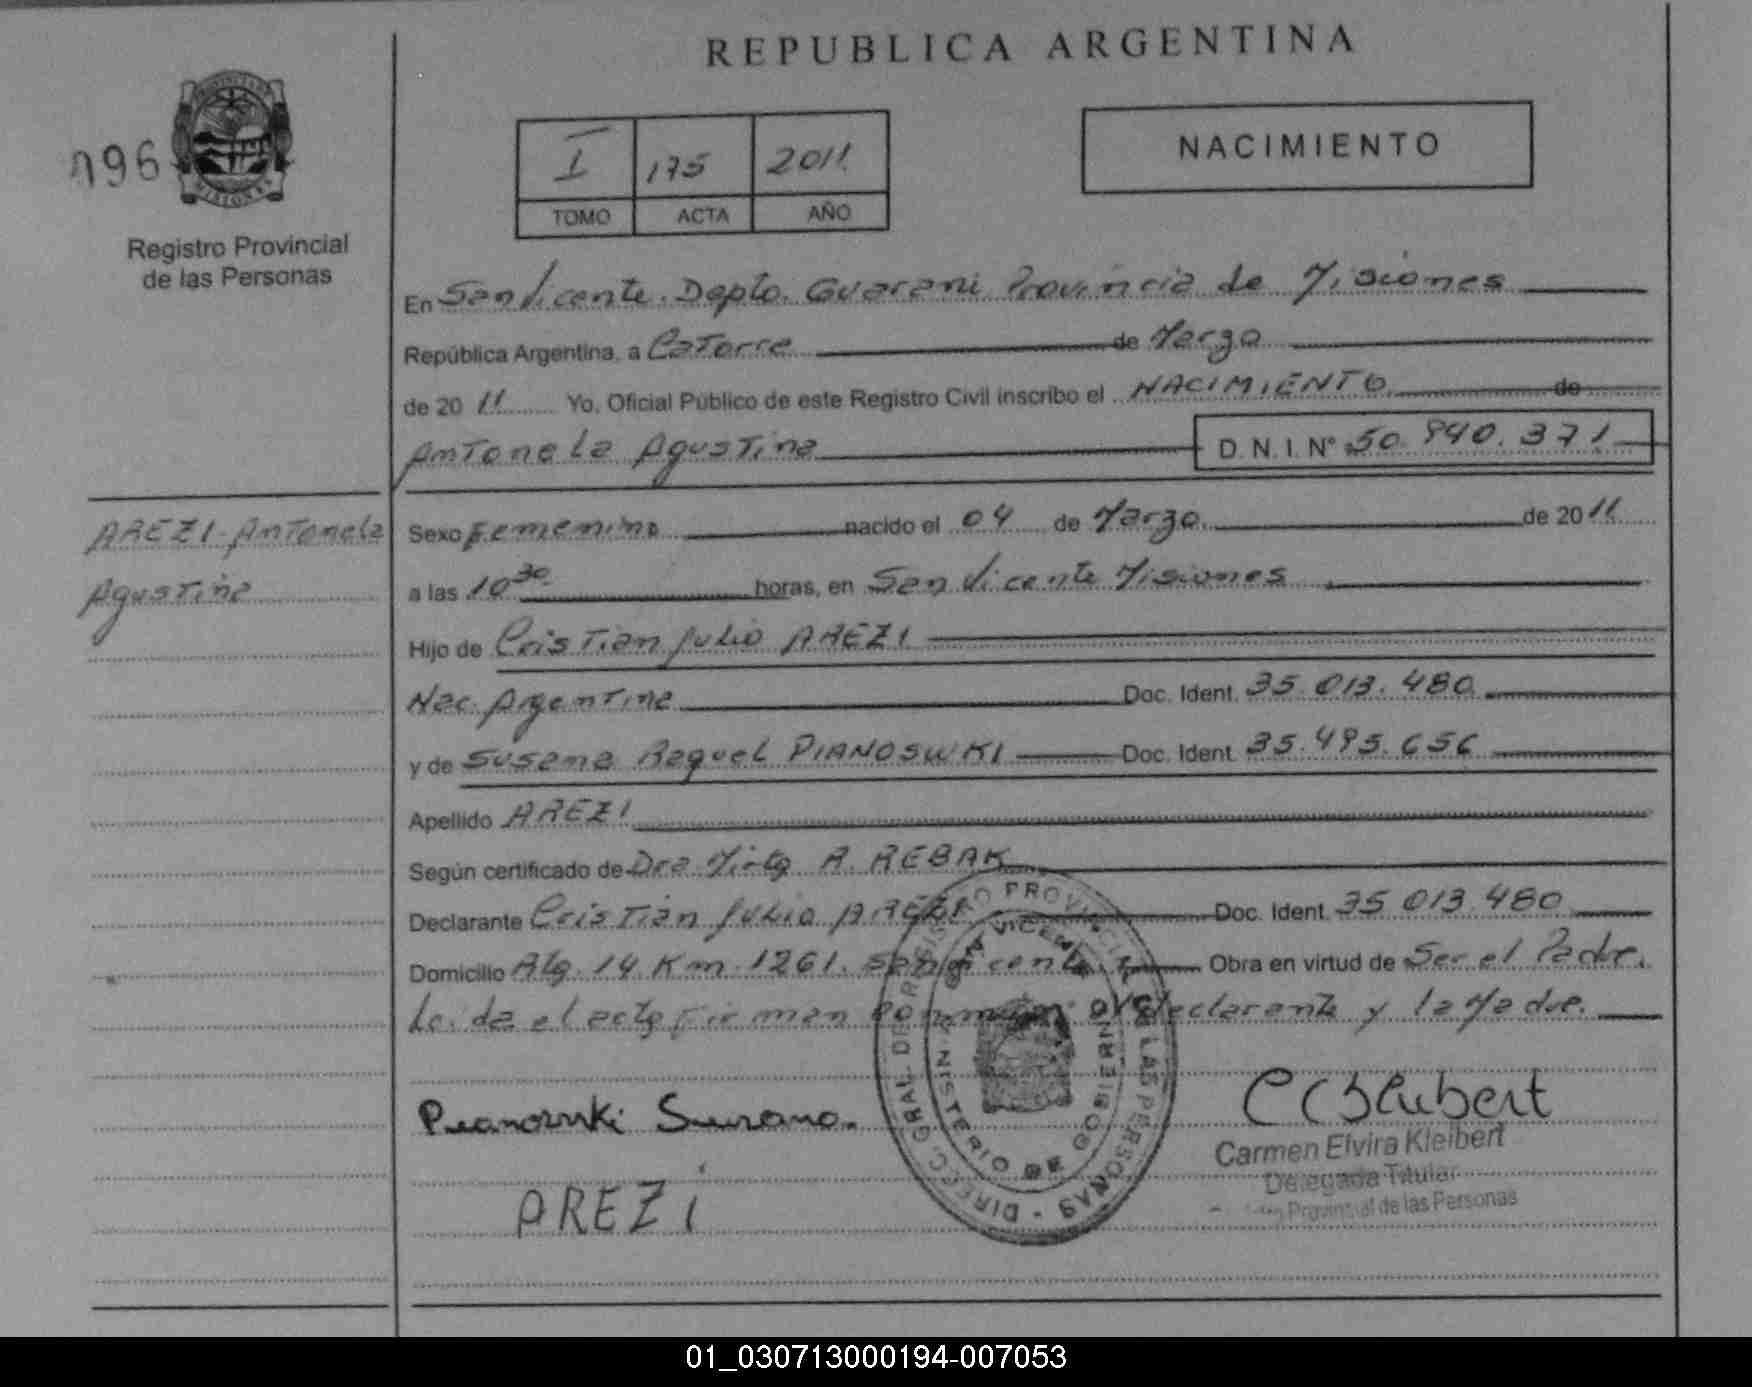 REPUBLICA ARGENTINA
196
I 175 2011
TOMO ACTA AÑO
NACIMIENTO
Registro Provincial
de las Personas
En San Vicente. Depto. Guarani Provincia de Misiones
República Argentina, a Catorce de Marzo
de 2011 Yo, Oficial Público de este Registro Civil inscribo el NACIMIENTO de
Antonela Agustina D. N. I. Nº 50.940.371
AREZI - Antonela
Agustina
Sexo Femenino nacido el 04 de Marzo de 2011
a las 10 30 horas, en San Vicente Misiones
Hijo de Cristian Julio AREZI
Nac. Argentina Doc. Ident. 35.013.480
y de Susana Raquel PIANOSWKI Doc. Ident. 35.495.656
Apellido AREZI
Según certificado de Dra Mirta R. REBAK
Declarante Cristian Julio AREZI Doc. Ident. 35.013.480
Domicilio Km 1261. San Vicente Obra en virtud de Ser el Padre.
Leida el acta firman el declarante y la Madre.
DIREC. GRAL. DE REGISTRO PROVINCIAL DE LAS PERSONAS
SAN VICENTE
MINISTERIO DE GOBIERNO
Pianozwki Susana.
AREZI
Carmen Elvira Kleibert
Delegada Titular
Provincial de las Personas
01_030713000194-007053